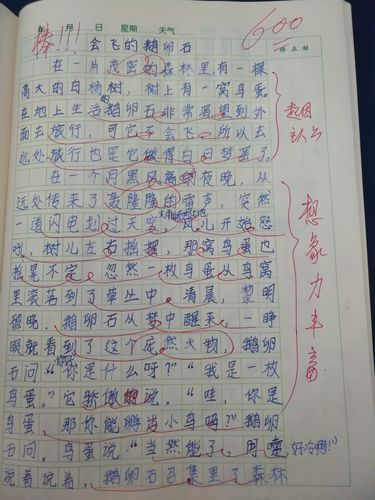 棒!!!
月 日 星期 天气
600
会飞的鹅卵石
在一片茂密的森林里,有一棵
高大的白杨树,树上有一窝鸟蛋
在地上生活的鹅卵石非常渴望到外
面去旅行,可它不会飞。所以去
远处旅行也是它做得白日梦罢了,
起因
在一个月黑风高的夜晚,从
远处传来了轰隆隆的雷声,突然
一道闪电划过天空,风儿开始怒
吼,树儿左右摇摆,那窝鸟蛋也
摇晃不定。忽然一枚鸟蛋从鸟窝
里衰落到了草丛中。清晨,黎明
破晓,鹅卵石从梦中醒来,一睁
眼就看到了这个庞然大物,鹅卵
石问:“你是什么呀?”“我是一枚
鸟蛋。”它骄傲的说。“哇,你是
鸟蛋,那你能孵出小鸟吗?”鹅卵
石问。鸟蛋说:“当然能了,
好冷啊!”
说着说着,鹅卵石召集里了森林
想象力丰富